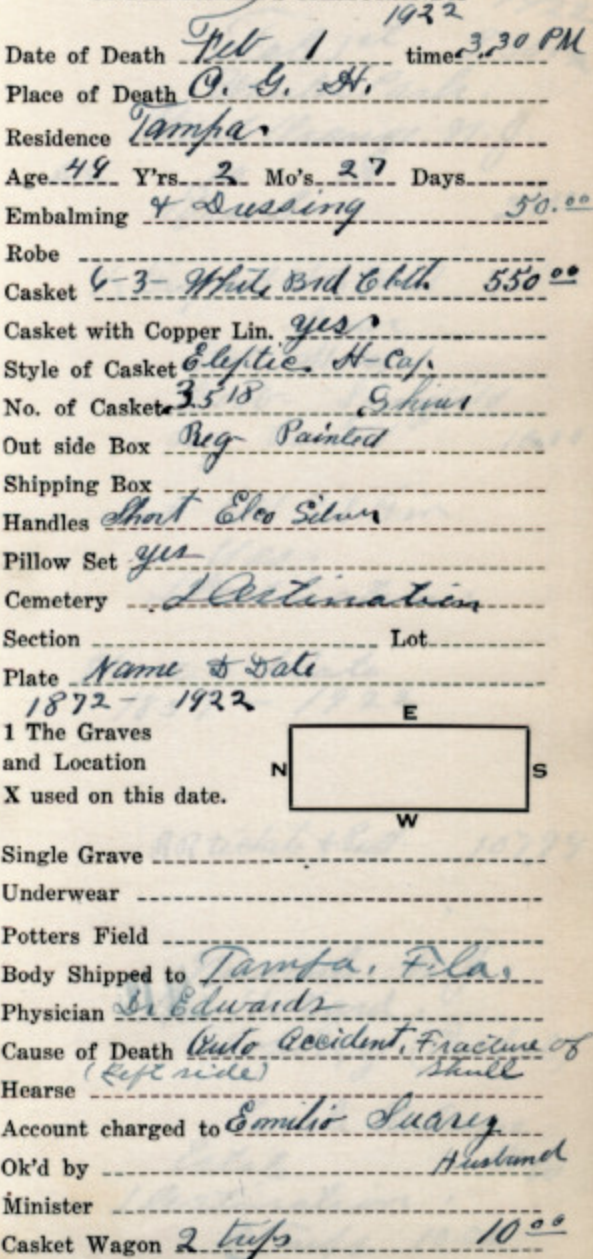 1922
Date of Death Feb 1 time 3,30 PM
Place of Death O. G. H.
Residence Tampa.
Age 49 Y'rs 2 Mo's 27 Days
Embalming & Dressing 50.00
Robe
Casket 6-3- White Brd Clth 550 00
Casket with Copper Lin. yes
Style of Casket Eleptic H-Cap.
No. of Casket 3518
Out side Box Reg Painted
Shipping Box
Handles Short Elco Silver
Pillow Set yes
Cemetery Destination
Section Lot
Plate Name & Date
1872 - 1922
E
1 The Graves
and Location
N S
X used on this date.
W
Single Grave
Underwear
Potters Field
Body Shipped to Tampa, Fla.
Physician Dr Edwards
Cause of Death Auto Accident, Fracture of
(Left side) Skull
Hearse
Account charged to Emilio Suarez
Husband
Ok'd by
Minister
Casket Wagon 2 trips 10 00